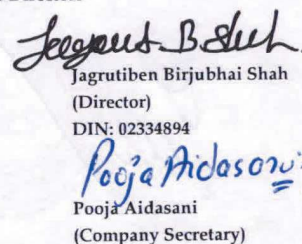 Jagrutiben Birjubhai Shah
(Director)
DIN: 02334894
Pooja Aidasani
Pooja Aidasani
(Company Secretary)